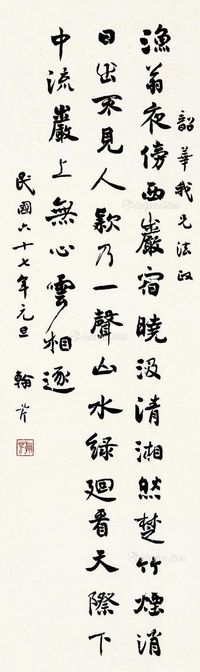 韶華我兄法政
漁翁夜傍西巖宿曉汲清湘然楚竹煙消
日出不見人欸乃一聲山水綠廻看天際下
中流巖上無心雲相逐
民國六十七年元旦 翰芹